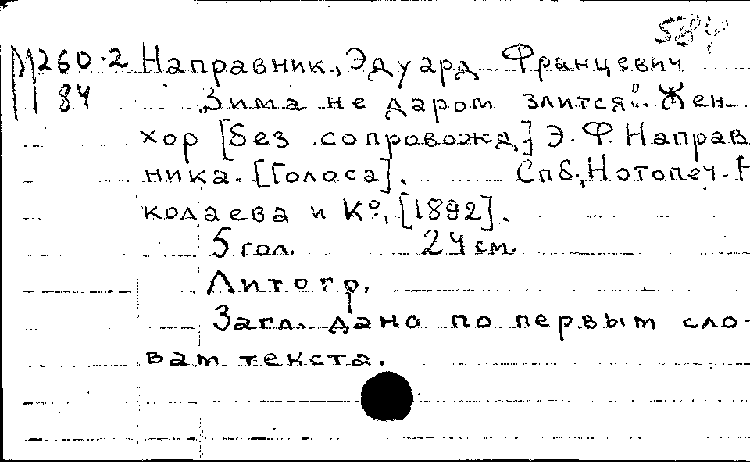 584
М 260-2 Направник, Эдуард Францевич
84 „Зима не даром злится". Жен.
хор [без сопровожд.] Э. Ф. Направ
ника. [Голоса]. Спб., Нотопеч. Н
колаева и Кº, [1892].
5 гол. 24 см.
Литогр.
Загл. дано по первым сло-
вам текста.